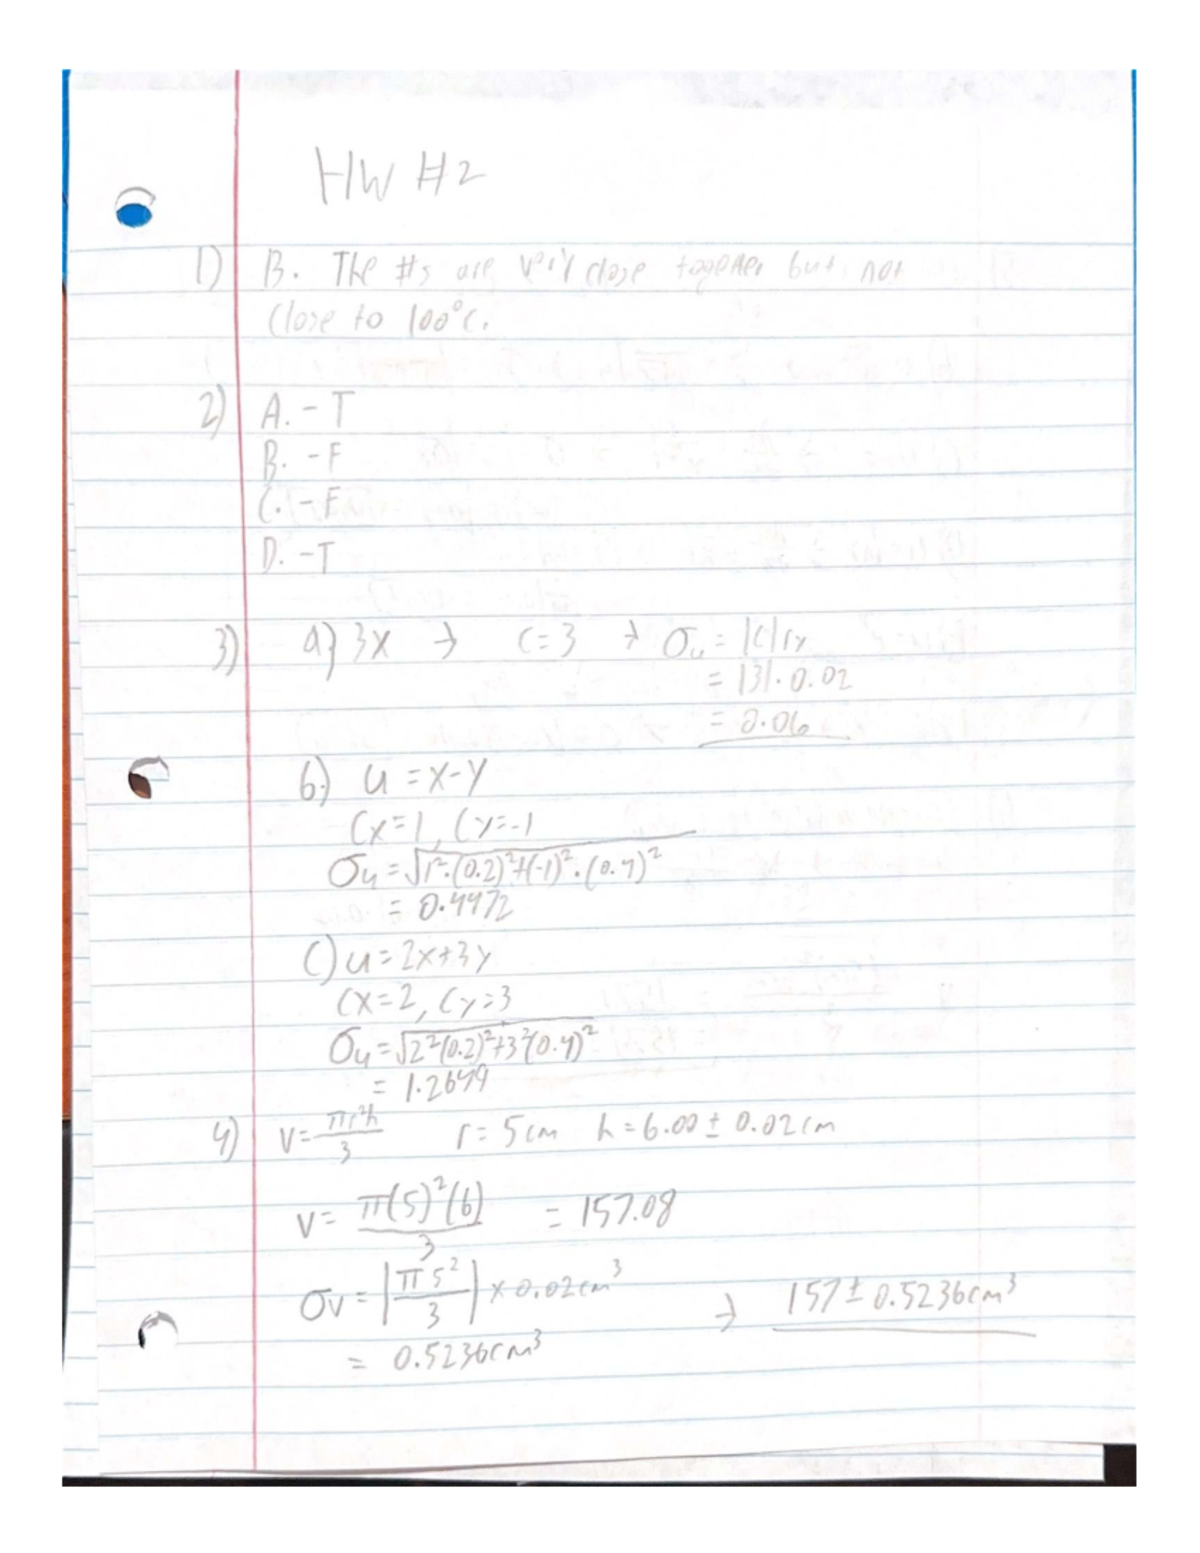 HW #2
1) B. The #s are very close together but not
close to 100°C.
2) A. - T
B. - F
C. - F
D. - T
3) a) 3x → C=3 → σu = |C|σx
= |3|·0.02
= 0.06
b.) u = x-y
Cx=1, Cy=-1
σu = √1²·(0.2)²+(-1)²·(0.4)²
= 0.4472
C) u=2x+3y
Cx=2, Cy=3
σu = √2²(0.2)²+3²(0.4)²
= 1.2649
4) V= πr²h/3 r= 5cm h=6.00 ± 0.02cm
V= π(5)²(6)/3 = 157.08
σv = |π5²/3| × 0.02cm³ → 157 ± 0.5236cm³
= 0.5236cm³